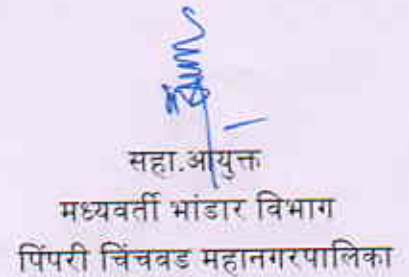 सहा.आयुक्त
मध्यवर्ती भांडार विभाग
पिंपरी चिंचवड महानगरपालिका